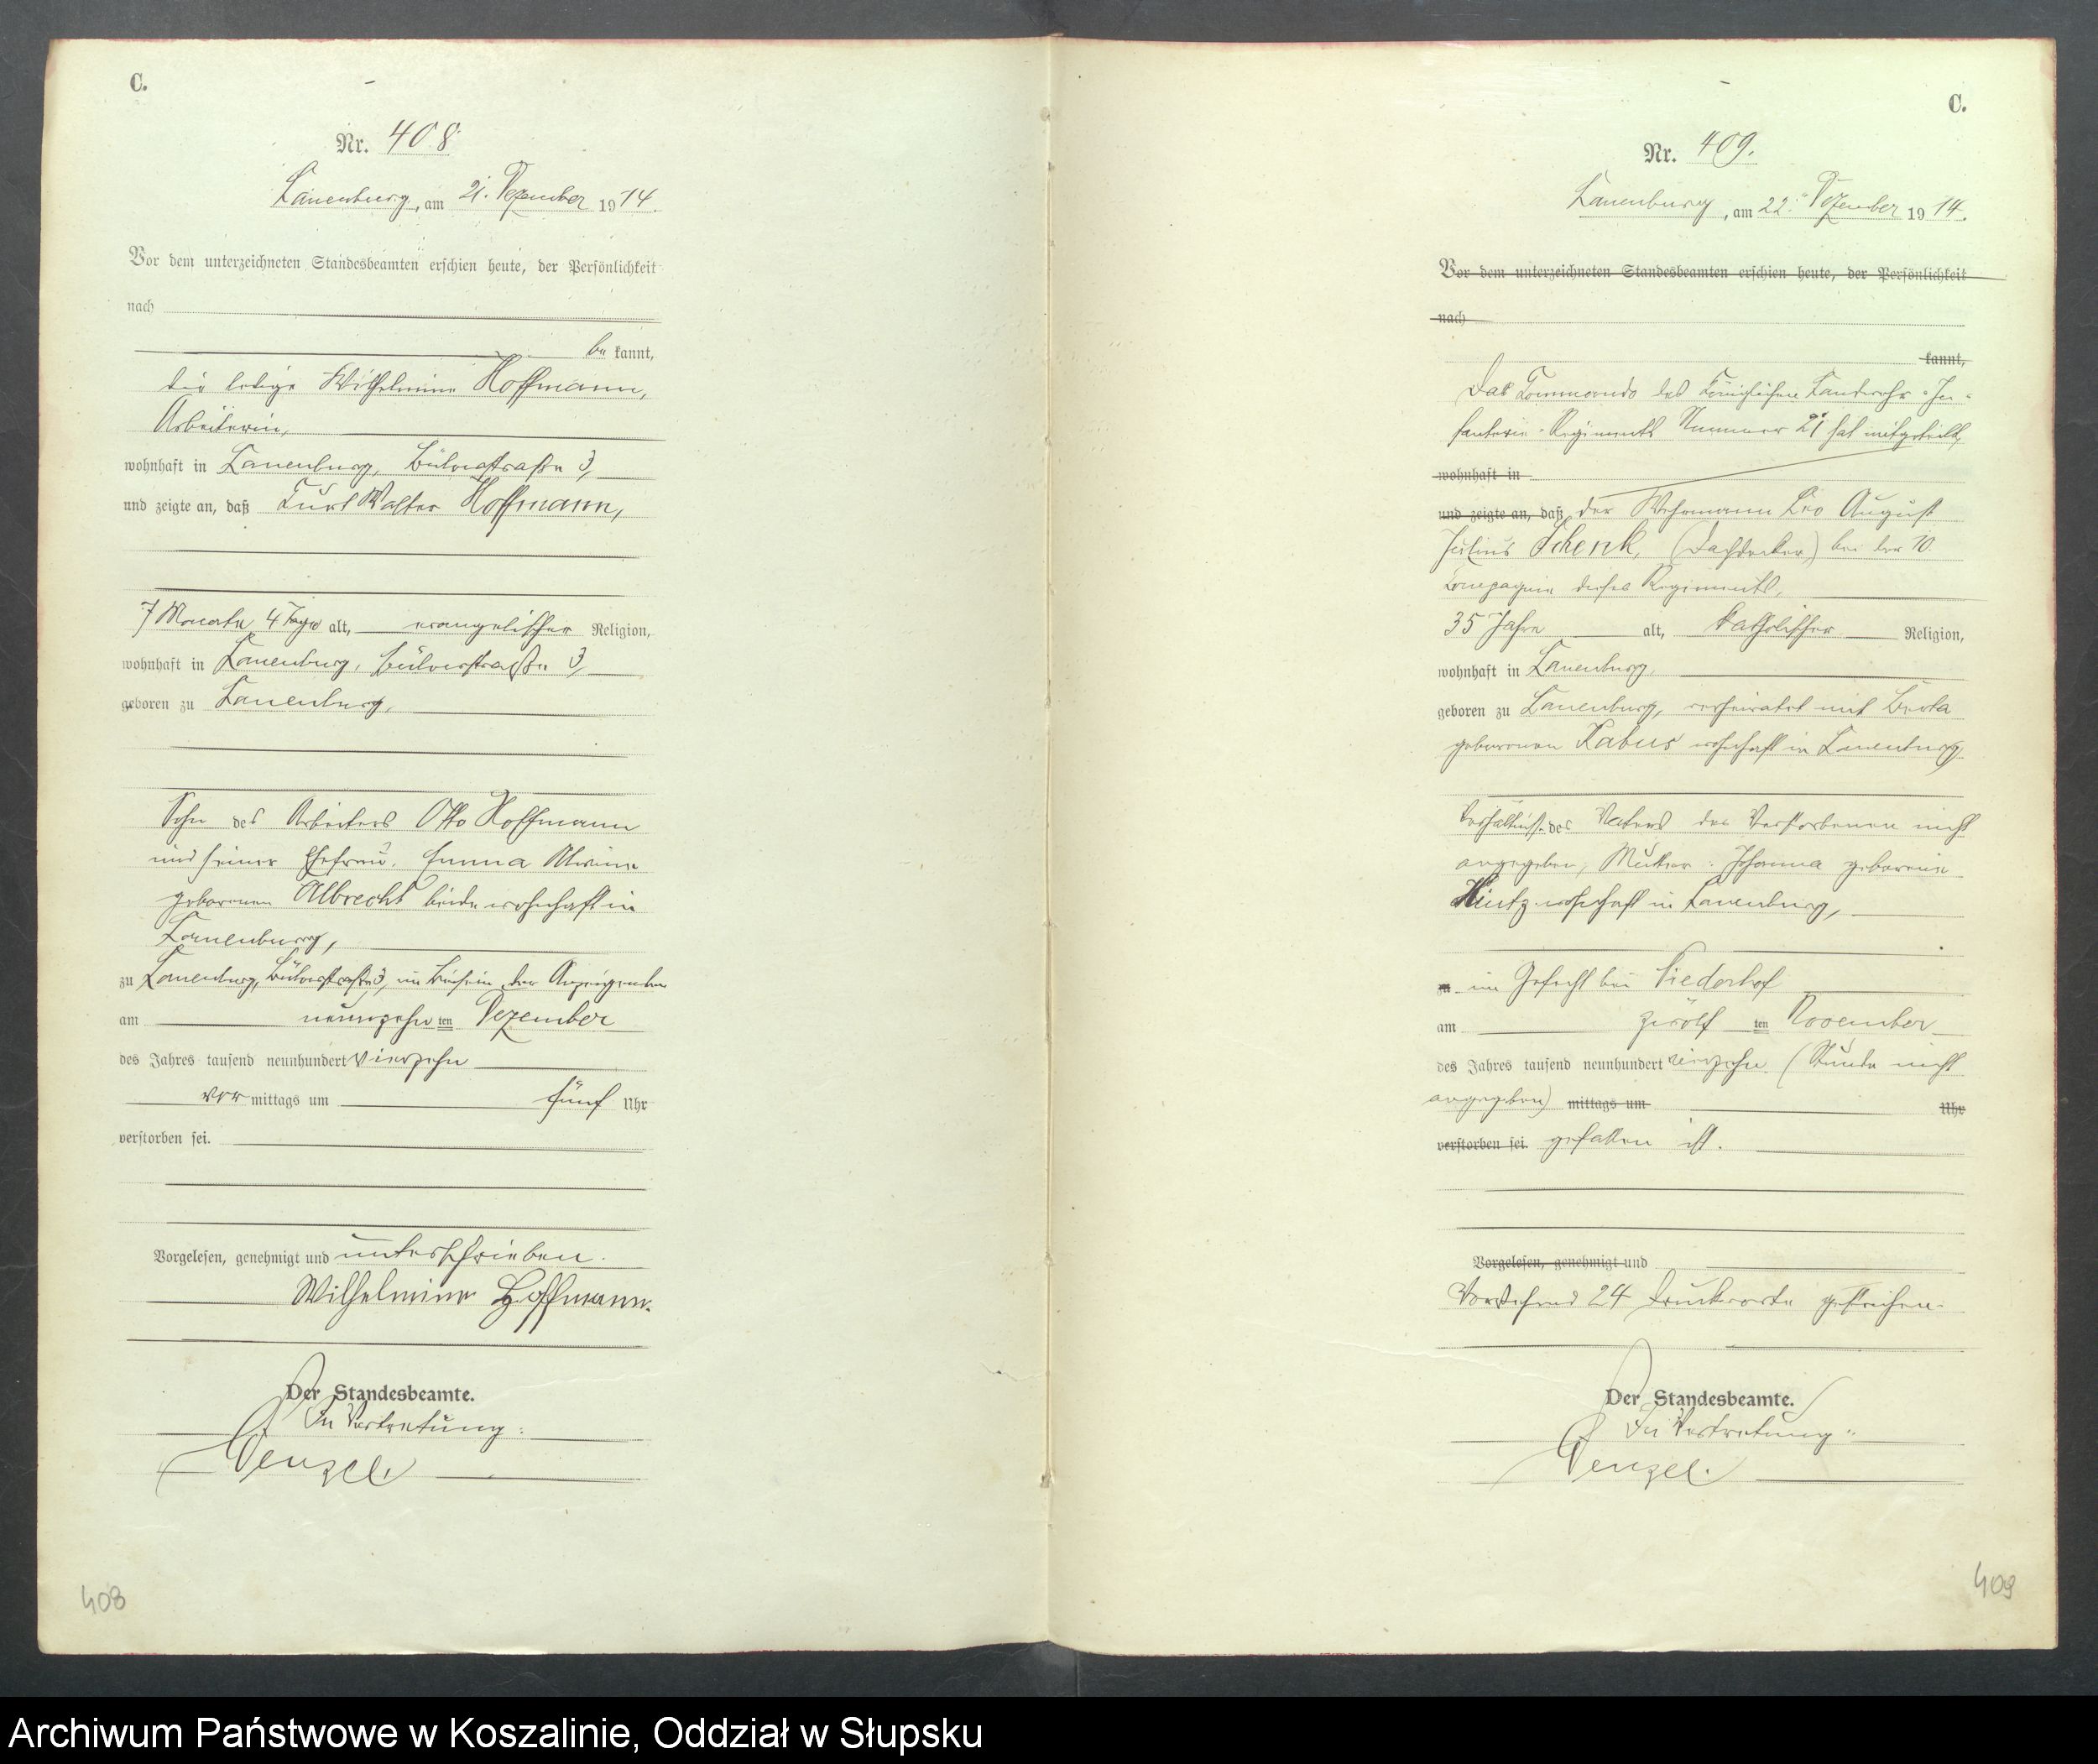 C.
Nr. 408
Lauenburg, am 21. Dezember 1914.
Vor dem unterzeichneten Standesbeamten erschien heute, der Persönlichkeit
nach
be kannt,
die ledige Wilhelmine Hoffmann,
Arbeiterin,
wohnhaft in Lauenburg, Bülowstraße 3,
und zeigte an, daß Kurt Walter Hoffmann,
7 Monate 4 Tage alt, evangelischer Religion,
wohnhaft in Lauenburg, Bülowstraße 3,
geboren zu Lauenburg,
Sohn des Arbeiters Otto Hoffmann
und seiner Ehefrau Emma Alwine
geborenen Albrecht beide wohnhaft in
Lauenburg,
zu Lauenburg, Bülowstraße 3, im Beisein der Anzeigenden
am neunzehn ten Dezember
des Jahres tausend neunhundert vierzehn
vor mittags um fünf Uhr
verstorben sei.
Vorgelesen, genehmigt und unterschrieben.
Wilhelmine Hoffmann.
Der Standesbeamte.
In Vertretung:
Wenzel.
408
C.
Nr. 409.
Lauenburg, am 22. Dezember 1914.
Vor dem unterzeichneten Standesbeamten erschien heute, der Persönlichkeit
nach
kannt,
Das Kommando des Königlichen Landwehr-In-
fanterie-Regiments Nummer 21 hat mitgeteilt,
wohnhaft in
und zeigte an, daß der Wehrmann Leo August
Julius Schenk, (Dachdecker) bei der 10.
Kompagnie dieses Regiments,
35 Jahre alt, katholischer Religion,
wohnhaft in Lauenburg,
geboren zu Lauenburg, verheiratet mit Berta
geborenen Kabus wohnhaft in Lauenburg,
Verhältnisse des Vaters des Verstorbenen nicht
angegeben, Mutter: Johanna geborene
Hintz wohnhaft in Lauenburg,
zu im Gefecht bei
am zwölf ten November
des Jahres tausend neunhundert vierzehn (Stunde nicht
angegeben) mittags um Uhr
verstorben sei. gefallen ist.
Vorgelesen, genehmigt und
Vorstehend 24 Druckworte gestrichen.
Der Standesbeamte.
In Vertretung:
Wenzel.
409
Archiwum Państwowe w Koszalinie, Oddział w Słupsku